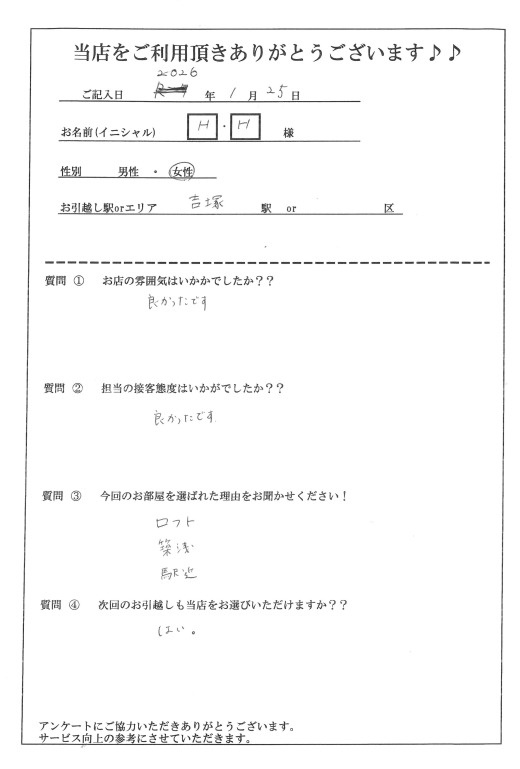 当店をご利用頂きありがとうございます♪♪
2026
ご記入日 年 1 月 25 日
お名前(イニシャル) H ・ H 様
性別 男性 ・ 女性
お引越し駅orエリア 吉塚 駅 or 区
質問 ① お店の雰囲気はいかかでしたか??
良かったです
質問 ② 担当の接客態度はいかがでしたか??
良かったです
質問 ③ 今回のお部屋を選ばれた理由をお聞かせください!
ロフト
築浅
駅近
質問 ④ 次回のお引越しも当店をお選びいただけますか??
はい。
アンケートにご協力いただきありがとうございます。
サービス向上の参考にさせていただきます。